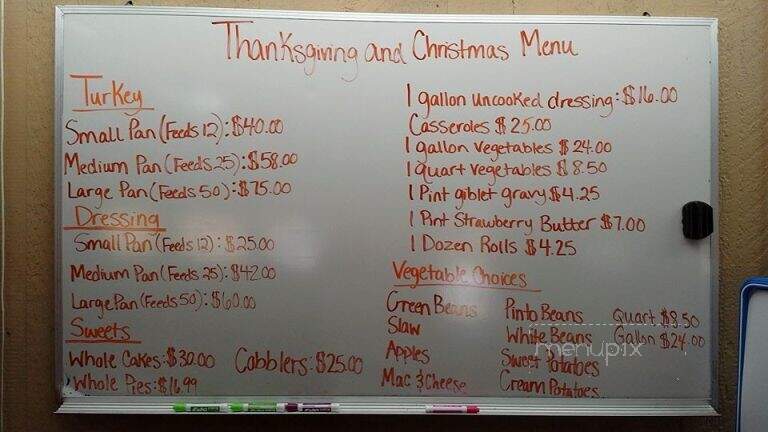 Thanksgiving and Christmas Menu
Turkey
Small Pan (Feeds 12): $40.00
Medium Pan (Feeds 25): $58.00
Large Pan (Feeds 50): $75.00
Dressing
Small Pan (Feeds 12): $25.00
Medium Pan (Feeds 25): $42.00
Large Pan (Feeds 50): $60.00
Sweets
Whole Cakes: $30.00 Cobblers: $25.00
Whole Pies: $16.99
1 gallon uncooked dressing: $16.00
Casseroles $25.00
1 gallon vegetables $24.00
1 quart vegetables $8.50
1 Pint giblet gravy $4.25
1 Pint Strawberry Butter $7.00
1 Dozen Rolls $4.25
Vegetable Choices
Green Beans Pinto Beans Quart $8.50
Slaw White Beans Gallon $24.00
Apples Sweet Potatoes
Mac & Cheese Cream Potatoes
menupix